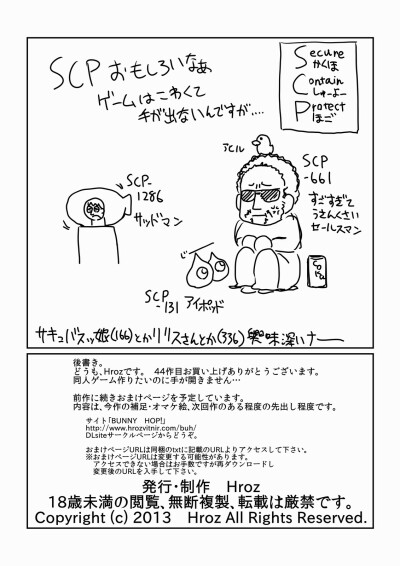 SCPおもしろいなぁ
ゲームはこわくて
手が出ないんですが....
Secure
かくほ
Contain
しゅーよー
Protect
ほご
アヒル
SCP
-661
すごすぎて
うさんくさい
セールスマン
SCP-
1286
サッドマン
SCP
-131 アイポッド
サキュバスッ娘(166)とかリリスさんとか(336)興味深いナー
後書き。
どうも、Hrozです。 44作目お買い上げありがとうございます。
同人ゲーム作りたいのに手が開きません…
前作に続きおまけページを予定しています。
内容は、今作の補足・オマケ絵、次回作のある程度の先出し程度です。
サイト「BUNNY HOP!」
http://www.hrozvitnir.com/buh/
DLsiteサークルページからどうぞ。
おまけページURLは同梱のtxtに記載のURLよりアクセスして下さい。
※おまけページURLは変更する可能性があります。
アクセスできない場合はお手数ですが再ダウンロードし
変更後のURLを入手して下さい。
発行・制作 Hroz
18歳未満の閲覧、無断複製、転載は厳禁です。
Copyright (c) 2013 Hroz All Rights Reserved.